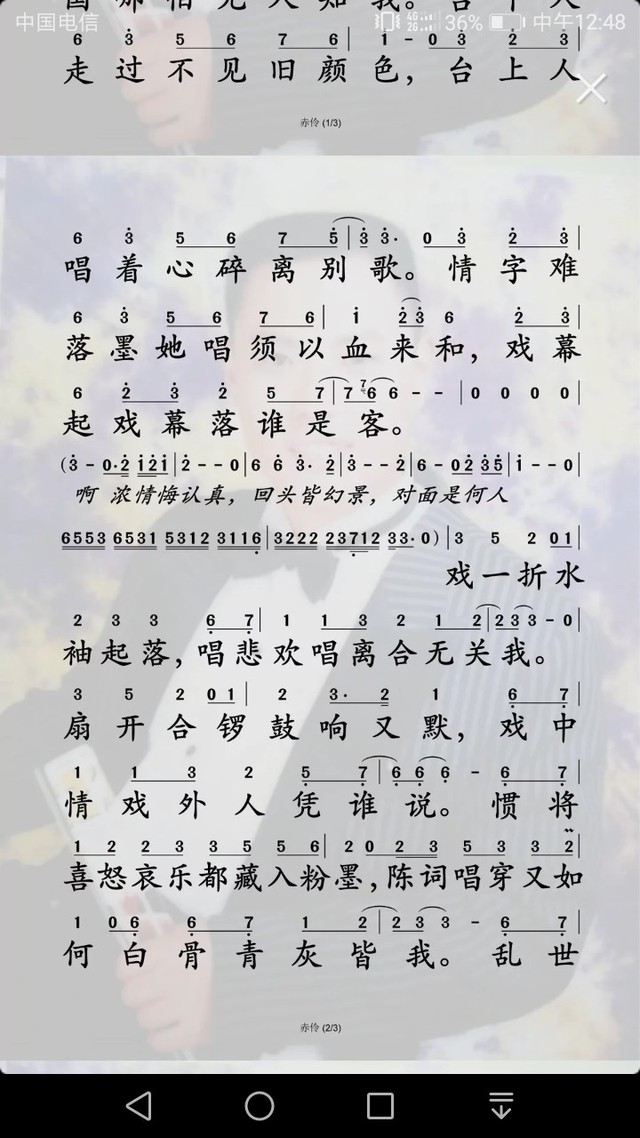 中国电信 36% 中午12:48
国那怕无人知我。台下人
6 3 5 6 7 6 | 1 - 0 3 2 3
走过不见旧颜色，台上人
赤伶 (1/3)
6 3 5 6 7 5 | 3 3· 0 3 2 3 |
唱着心碎离别歌。情字难
6 3 5 6 7 6 | 1 2 3 6 2 3 |
落墨她唱须以血来和，戏幕
6 2 3 2 5 7 | 7 7 6 6 - - | 0 0 0 0 |
起戏幕落谁是客。
(3 - 0·2 1 2 1 | 2 - - 0 | 6 6 3· 2 | 3 - - 2 | 6 - 0 2 3 5 | 1 - - 0 |
啊 浓情悔认真，回头皆幻景，对面是何人
6553 6531 5312 3116 | 3222 223712 33·0) | 3 5 2 0 1 |
戏一折水
2 3 3 6 7 | 1 1 3 2 1 2 | 2 3 3 - 0 |
袖起落，唱悲欢唱离合无关我。
3 5 2 0 1 | 2 3· 2 1 6 7 |
扇开合锣鼓响又默，戏中
1 1 3 2 5 7 | 6 6 6 - 6 7 |
情戏外人凭谁说。惯将
1 2 2 3 3 5 5 6 | 2 0 2 3 5 3 3 2 |
喜怒哀乐都藏入粉墨，陈词唱穿又如
1 0 6 6 7 1 2 | 2 3 3 - 6 7 |
何白骨青灰皆我。乱世
赤伶 (2/3)